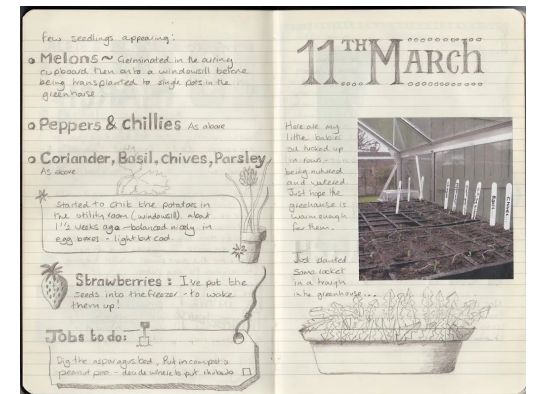 Few seedlings appearing:
Melons ~ Germinated in the airing
cupboard then onto a windowsill before
being transplanted to single pots in the
greenhouse.
Peppers & chillies As above
Coriander, Basil, Chives, Parsley
As above
Started to chit the potatoes in
the utility room (windowsill) about
1½ weeks ago - balanced nicely in
egg boxes - light but cool.
Strawberries: I've put the
seeds into the freezer - to wake
them up!
Jobs to do:
Dig the asparagus bed, Put in compost &
- decide where to put rhubarb
11TH March
Here are my
little babies
all tucked up
in rows -
being nurtured
and watered.
Just hope the
greenhouse is
warm enough
for them.
Just planted
some rocket
in a trough
in the greenhouse...
Basil
Chives